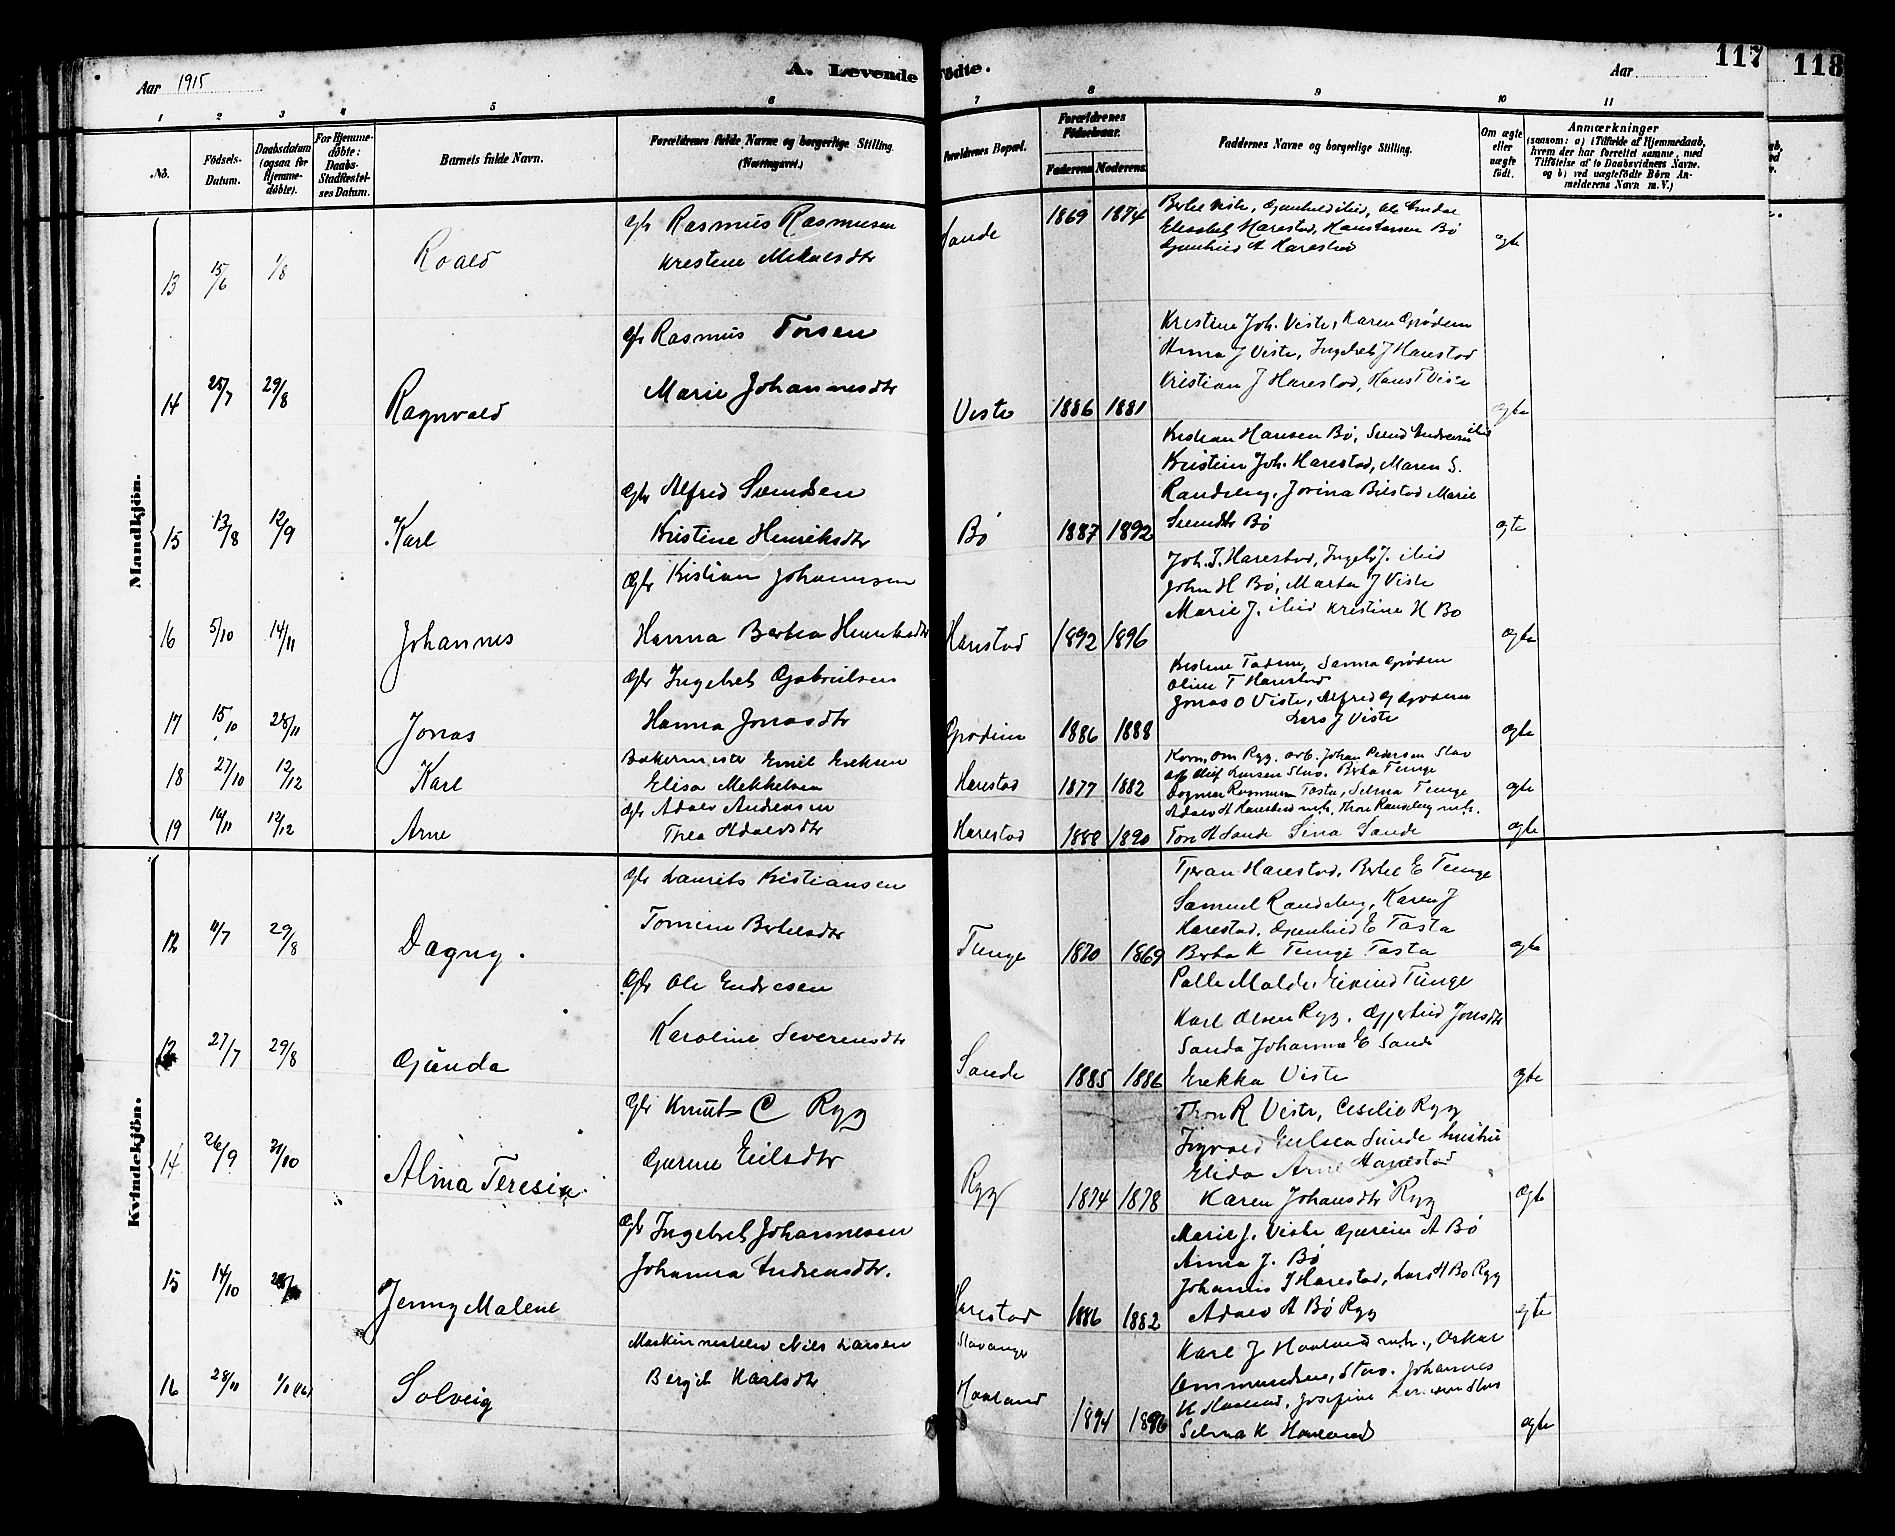 Aar 1915
A. Levende Födte.
Aar
117
118
1 2 3 4 5 6 7 8 9 10 11
No.
Födsels-Datum.
Daabsdatum (ogsaa for Hjemme-döbte).
For Hjemme-döbte: Daabs-Stadfæstel-ses Datum.
Barnets fulde Navn.
Forældrenes fulde Navne og borgerlige Stilling. (Næringsvei.)
Forældrenes Bopæl.
Forældrenes Födselsaar.
Faderens Moderens
Faddernes Navne og borgerlige Stilling.
Om ægte eller uægte födt.
Anmærkninger
(saasom: a) i Tilfælde af Hjemmedaab,
hvem der har forrettet samme, med
Tilföielse af to Daabsvidners Navne.
og b) ved uægtefödte Börn An-
melderens Navn m. V.)
Mandkjön.
13 15/6 1/8 Roald
Gbr Rasmus Rasmussen
Krestene Mikalsdtr
Sande 1869 1874
Elisabet Harestad, Hans Larsen Bö
Gunhild A Harestad
ægte
14 25/7 29/8 Ragnvald
Gbr Rasmus Torsen
Marie Johannesdtr
Viste 1886 1881
Kristine Joh. Viste, Karen Grödem
Anna J Viste, Ingebret J Harestad
Kristian J Harestad, Hans T Viste
ægte
15 13/8 12/9 Karl
Gbr Alfred Svendsen
Kristine Henriksdtr
Bö 1887 1892
Kristian Hansen Bö, Svend Andersen ibid
Kristine Joh. Harestad, Maren S.
Randeberg, Jorina Bilstad Marie
Svendsdtr Bö
ægte
16 5/10 14/11 Johannes
Gbr Kistian Johannesen
Hanna Bertha Henriksdtr
Harestad 1892 1896
Joh. I. Harestad, Ingebr J. ibid
John H Bö, Marta J Viste
Marie J. ibid Kristine H Bö
ægte
17 15/10 28/11 Jonas
Gbr Ingebret Gabrielsen
Hanna Jonasdtr
Grödem 1886 1888
Oline T Harestad
Jonas O Viste, Alfred G Grödem
Lars J Viste
ægte
18 27/10 12/12 Karl
Bakermester Emil Eriksen
Elisa Mekkelsen
Harestad 1877 1882
Korn. Om Ryg. arb. Johan Pedersen Stav
arb Olaf Larsen Stav. Berta Tunge
Dagmar Rasmussen Tasta, Selma Tunge
ægte
19 16/11 12/12 Arne
Gbr Adolv Andreasen
Thea Adolvsdtr
Harestad 1888 1890
Adolv A Harestad m.h. Thore Randeberg m.h.
Tore A Sande Sina Sande
ægte
Kvindekjön.
12 11/7 29/8 Dagny.
Gbr Laurits Kristiansen
Tomine Bertelsdtr
Tunge 1870 1869
Tjeran Harestad, Bertel E Tunge
Samuel Randeberg, Karen J
Harestad, Gunhild E Tasta
Berta K Tunge Tasta
ægte
13 27/7 29/8 Gunda
Gbr Ole Endresen
Karoline Severinsdtr
Sande 1885 1886
Palle Malde, Eivind Tunge
Karl Olsen Ryg. Gjertrud Jonsdtr
Sande Johanna E Sande
Erekka Viste
ægte
14 26/9 31/10 Alma Teresia.
Gbr Knut C Ryg
Gurine Eilsdtr
Ryg 1874 1878
Thor R Viste, Cesilie Ryg
Ingvald Eielsen Sunde hustru
Elida Arne Harestad
Karen Johansdtr Ryg
ægte
15 14/10 28/11 Jenny Malene
Gbr Ingebret Johannesen
Johanna Andreasdtr.
Harestad 1886 1882
Marie J. Viste Gurine A Bö
Anna J. Bö
Johannes I Harestad, Lars H Bö Ryg
Adolv A Bö Ryg
ægte
16 28/11 Solveig
Maskinmester Nils Larsen
Bergit Karlsdtr
Stavanger
Haaland 1894 1896
Karl J Haaland m.h., Oskar
Ommundsen, Stav. Johannes
K Haaland, Josefine Larsen Stav
Selma K Haaland
ægte